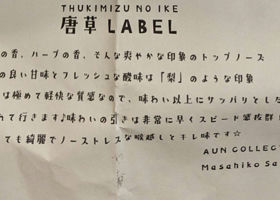 THUKIMIZU NO IKE
唐草LABEL
の香、ハーブの香、そんな爽やかな印象のトップノーズ
の良い甘味とフレッシュな酸味は「梨」のような印象
は極めて軽快な質感なので、味わい以上にサッパリとした
わて行きます♪味わいの引きは非常に早くスピード感抜群!
ても綺麗でノーストレスな喉越しとキレ味です☆
AUN COLLEC
Masahiko Sa